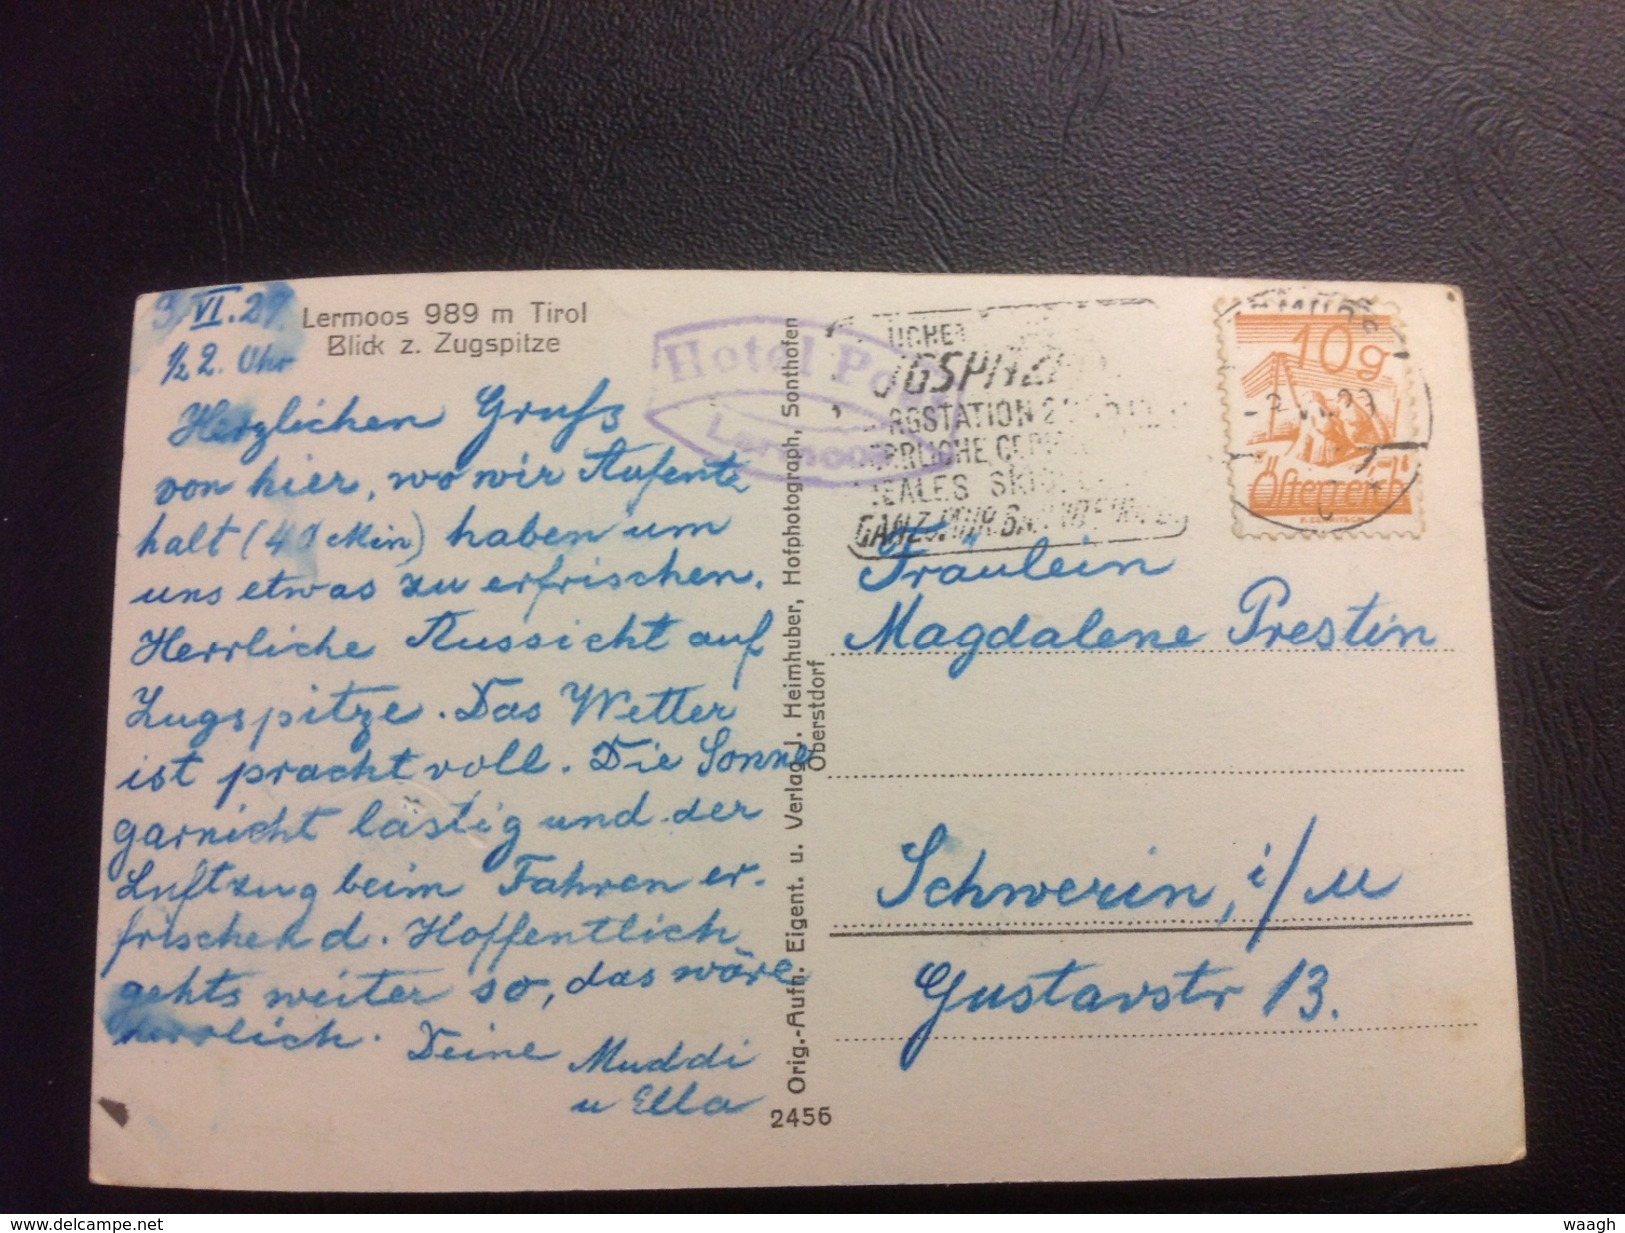 3. VI. 29
½ 2. Uhr
Lermoos 989 m Tirol
Blick z. Zugspitze
Herzlichen Gruß
von hier, wo wir Aufent-
halt (40 Min) haben um
uns etwas zu erfrischen.
Herrliche Aussicht auf
Zugspitze. Das Wetter
ist prachtvoll. Die Sonne
garnicht lästig und der
Luftzug beim Fahren er-
frischend. Hoffentlich
gehts weiter so, das wäre
herrlich. Deine Muddi
u Ella
Hotel Post
Lermoos
Orig.-Aufn. Eigent. u. Verlag J. Heimhuber, Hofphotograph, Sonthofen
Oberstdorf
2456
UGSPITZ
RGSTATION
RRLICHE
EALES SKI
GANZJ.
10g
Österreich
Fräulein
Magdalene Prestin
Schwerin, i/M
Gustavstr 13.
waagh
delcampe.net